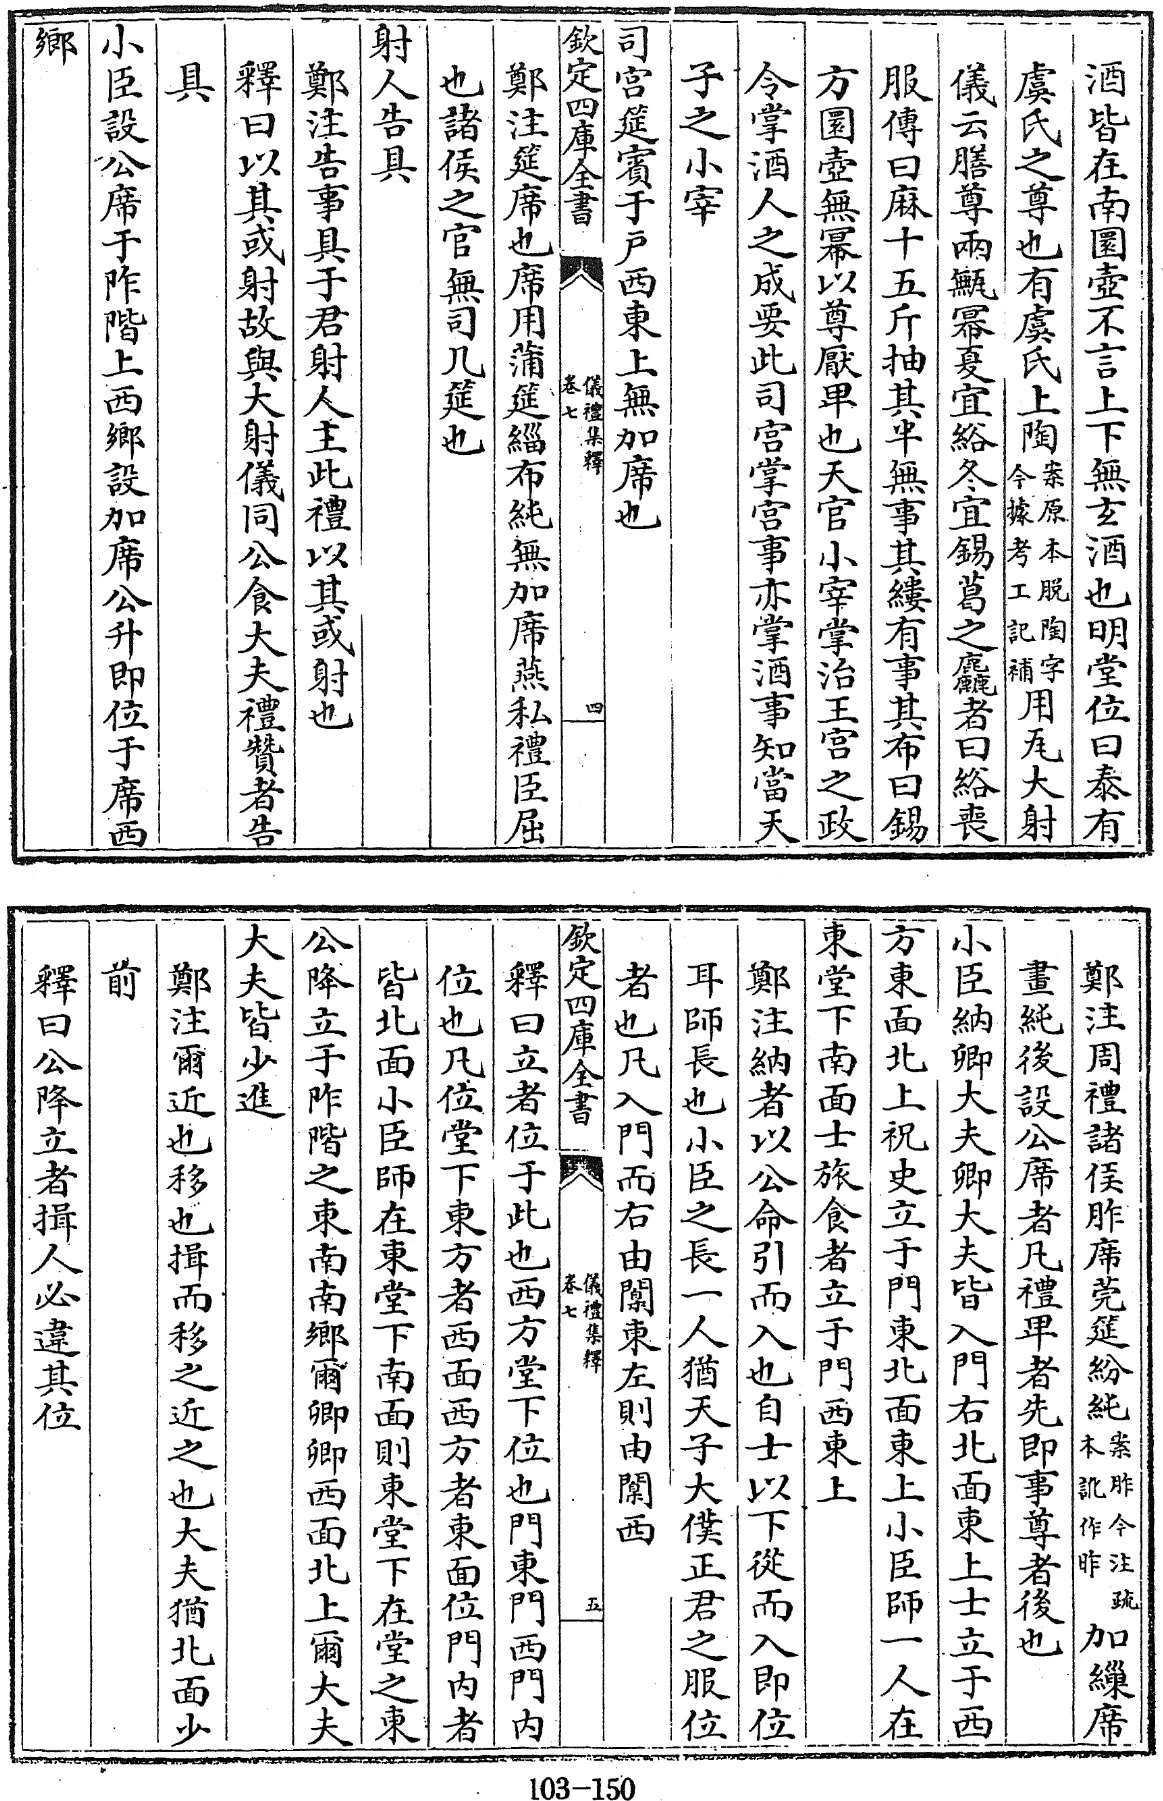 酒皆在南圜壺不言上下無玄酒也明堂位曰泰有
虞氏之尊也有虞氏上陶案原本脱陶字今據考工記補用瓦大射
儀云膳尊兩甒冪夏宜綌冬宜錫葛之麤者曰綌喪
服傳曰麻十五斤抽其半無事其縷有事其布曰錫
方圜壺無冪以尊厭卑也天官小宰掌治王宫之政
令掌酒人之成要此司宫掌宫事亦掌酒事知當天
子之小宰
司宫筵賓于戸西東上無加席也
欽定四庫全書
儀禮集釋
卷七
四
鄭注筵席也席用蒲筵緇布純無加席燕私禮臣屈
也諸侯之官無司几筵也
射人告具
鄭注告事具于君射人主此禮以其或射也
釋曰以其或射故與大射儀同公食大夫禮贊者告
具
小臣設公席于阼階上西鄉設加席公升即位于席西
鄉
鄭注周禮諸侯胙席莞筵紛純案胙今注疏本訛作昨加繅席
畫純後設公席者凡禮卑者先即事尊者後也
小臣納卿大夫卿大夫皆入門右北面東上士立于西
方東面北上祝史立于門東北面東上小臣師一人在
東堂下南面士旅食者立于門西東上
鄭注納者以公命引而入也自士以下從而入即位
耳師長也小臣之長一人猶天子大僕正君之服位
者也凡入門而右由闑東左則由闑西
欽定四庫全書
儀禮集釋
卷七
五
釋曰立者位于此也西方堂下位也門東門西門内
位也凡位堂下東方者西面西方者東面位門内者
皆北面小臣師在東堂下南面則東堂下在堂之東
公降立于阼階之東南南鄉爾卿卿西面北上爾大夫
大夫皆少進
鄭注爾近也移也揖而移之近之也大夫猶北面少
前
釋曰公降立者揖人必違其位
103-150